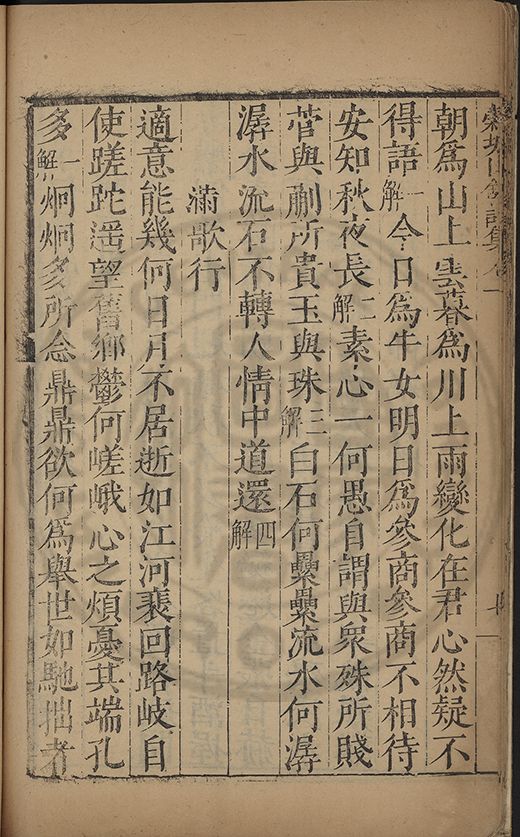 穀城山館詩集卷一
朝爲山上雲暮爲川上雨變化在君心然疑不
得語一解今日爲牛女明日爲參商參商不相待
安知秋夜長二解素心一何愚自謂與眾殊所賤
菅與蒯所貴玉與珠三解白石何纍纍流水何潺
潺水流石不轉人情中道還四解
滿歌行
適意能幾何日月不居逝如江河裴回路岐自
使蹉跎遥望舊鄉鬱何嵯峨心之煩憂其端孔
多一解炯炯多所念鼎鼎欲何爲舉世如馳拙者